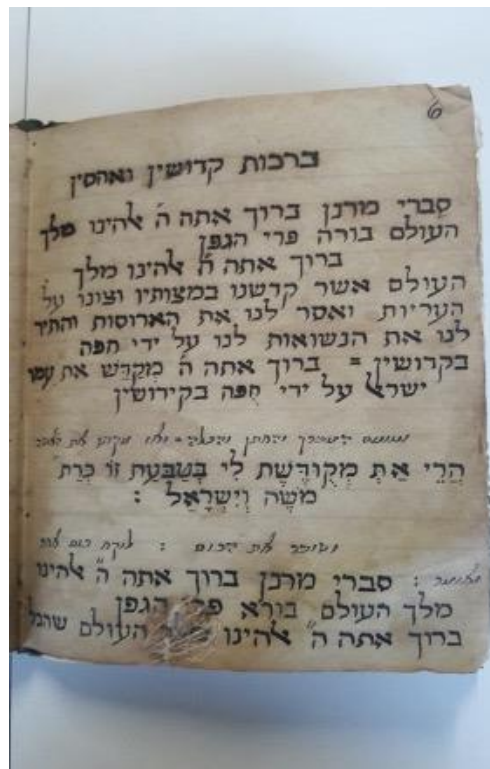 6
ברכות קדושין ואהסין
סברי מרנן ברוך אתה ה' אהינו מלך
העולם בורה פרי הגפן
ברוך אתה ה' אהינו מלך
העולם אשר קדשנו במצותיו וצונו על
העריות ואסר לנו את הארוסות והתיר
לנו את הנשואות לנו על ידי חפה
בקדושין = ברוך אתה ה' מקדש את עמו
ישראל על ידי חֻפה בקידושין
המברך והחתן והכלה
הֲרֵי אַתְּ מְקוּדֶּשֶׁת לִי בְּטַבַּעַת זוֹ כְּדַת
מֹשֶׁה וְיִשְׂרָאֵל :
ושובר את הכוס :
: סברי מרנן ברוך אתה ה" אהינו
מלך העולם בורא פרי הגפן
ברוך אתה ה" אהינו העולם